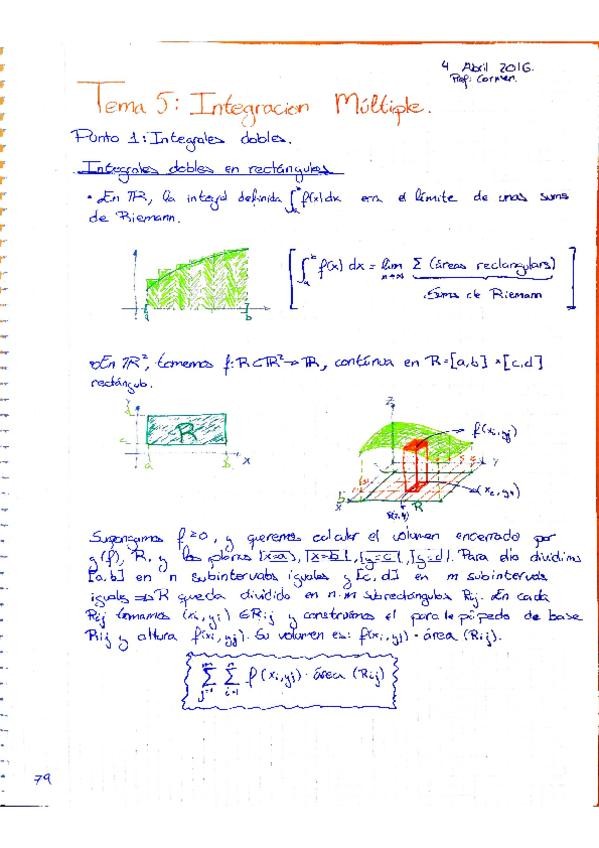 4 Abril 2016.
Prof: Carmen.
Tema 5: Integracion Múltiple.
Punto 1: Integrales dobles.
Integrales dobles en rectángulos
• En ℝ, la integral definida ∫ₐᵇ f(x) dx era el límite de unas sumas
de Riemann.
[∫ₐᵇ f(x) dx = lim n→∞ Σ (áreas rectangulars)]
Sumas de Riemann
a b
• En ℝ², tomemos f: R⊂ℝ²→ℝ, contínua en R=[a,b]×[c,d]
rectángulo.
y
d
c
R
a b x
z
f(xi,yj)
y
(xi,yj)
x
R
Supongamos f≥0, y queremos calcular el volumen encerrado por
g(f), R, y los planos x=a, x=b, y=c, y=d. Para ello dividimos
[a,b] en n subintervalos iguales y [c,d] en m subintervalos
iguales ⇒ R queda dividido en n·m subrectángulos Rij. En cada
Rij tomamos (xi,yj) ∈ Rij y construimos el paralelepípedo de base
Rij y altura f(xi,yj). Su volumen es: f(xi,yj) · área (Rij).
Σ j=1 Σ i=1 f(xi,yj) · área (Rij)
79